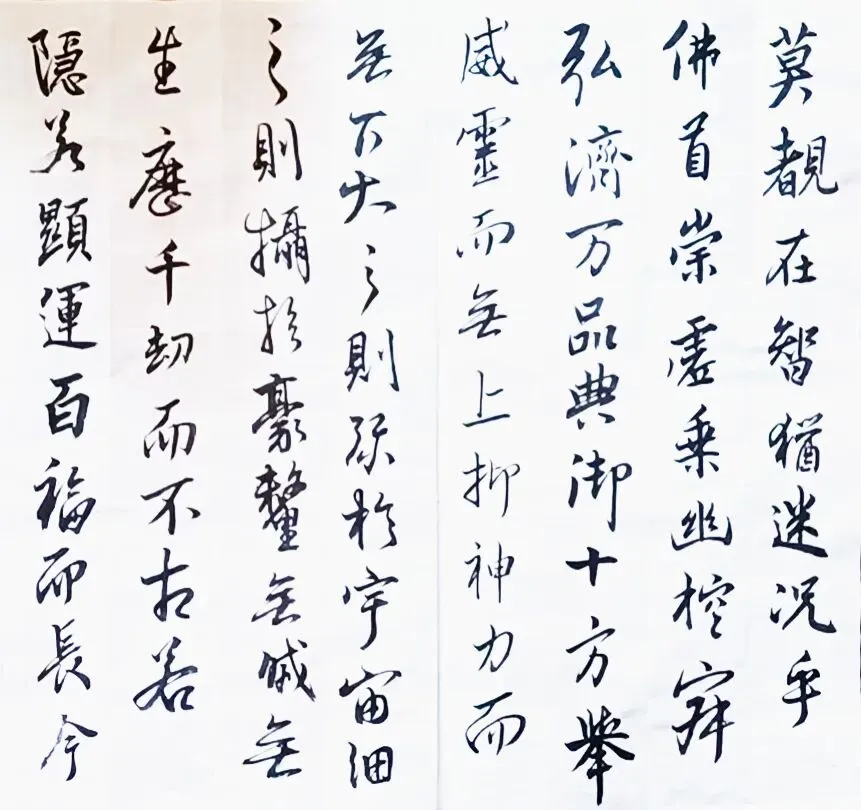 莫覩在智猶迷况乎
佛首崇虛乘幽控寂
弘濟万品典御十方舉
威靈而無上抑神力而
無下大之則弥於宇宙細
之則攝於豪釐無滅無
生歷千劫而不古若
隱若顯運百福而長今